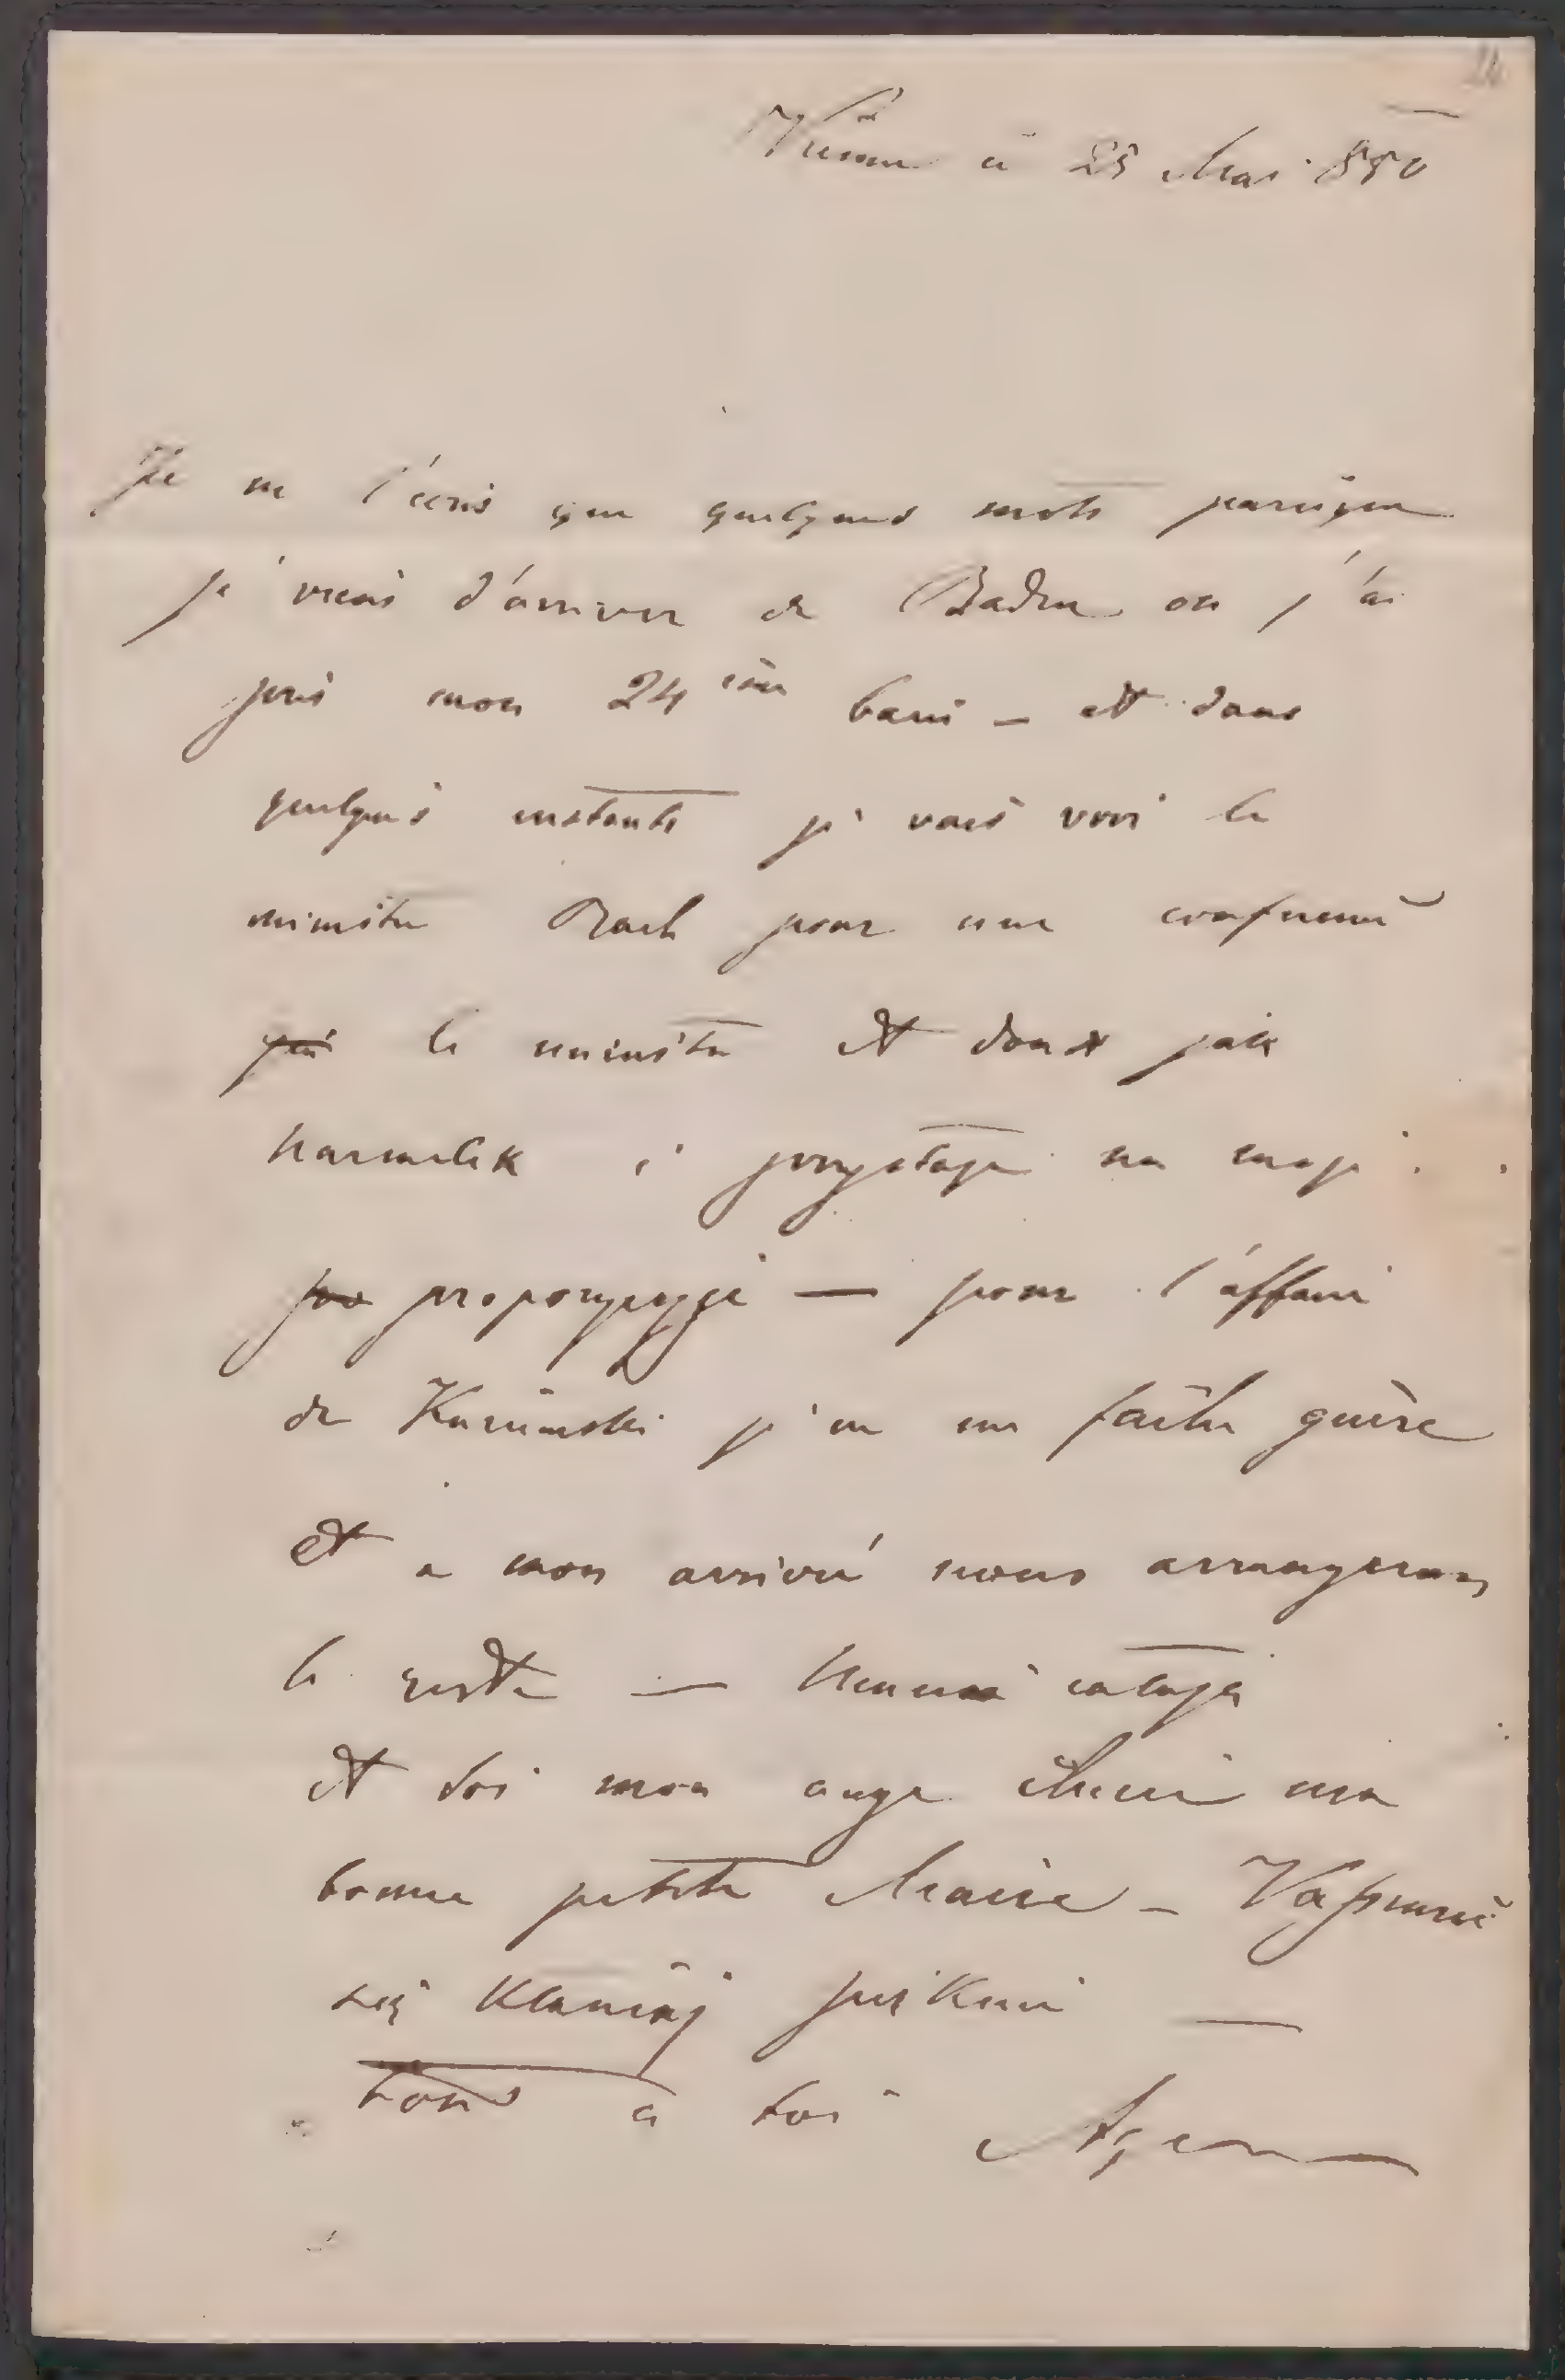 24
Vienne à 25 Mai 850
Je ne t'écris que quelques mots parceque
je viens d'arriver de Baden ou j'ai
pris mon 24 ième bain – et dans
quelques instants je vais voir le
ministre Bach pour une conference
le ministre et doux jak
baranek i przystaje na moje
propozycyje — pour l'affaire
de Kamiński je ne me fache guère
et a mon arrivée nous arrangerons
le reste — caluje
et toi mon ange cherie ma
bonne petite Marie – Va
się klaniaj pięknie —
tout a toi Agen